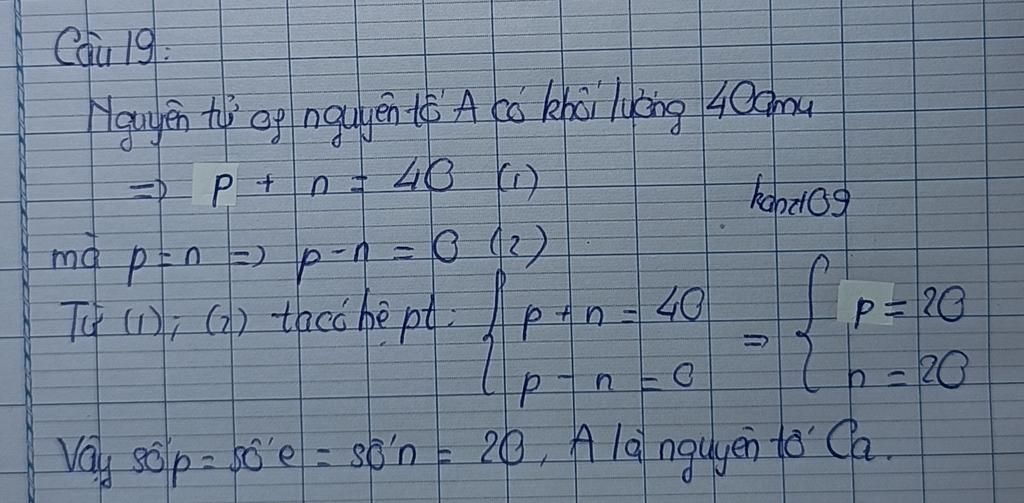 Câu 19:
Nguyên tử of nguyên tố A có khối lượng 40amu
=> p + n = 40 (1)
kahz109
mà p = n => p - n = 0 (2)
Từ (1), (2) ta có hệ pt: { p + n = 40 => { p = 20
p - n = 0 n = 20
Vậy số p = số e = số n = 20, A là nguyên tố Ca.